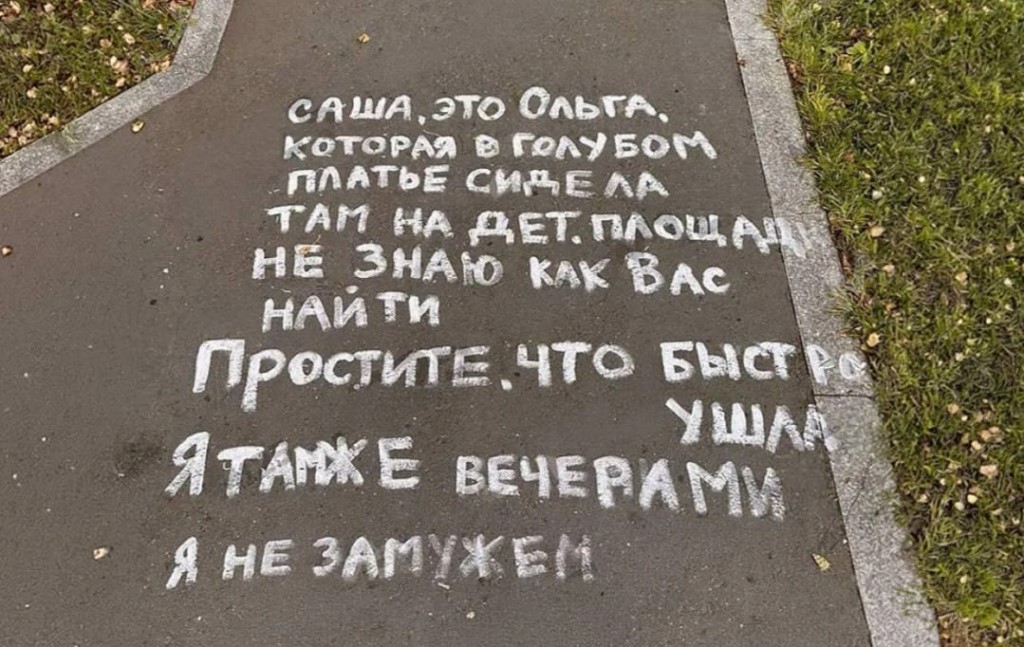 САША, ЭТО ОЛЬГА,
КОТОРАЯ В ГОЛУБОМ
ПЛАТЬЕ СИДЕЛА
ТАМ НА ДЕТ. ПЛОЩАДК
НЕ ЗНАЮ КАК ВАС
НАЙТИ
ПРОСТИТЕ, ЧТО БЫСТРО
УШЛА
Я ТАМЖЕ ВЕЧЕРАМИ
Я НЕ ЗАМУЖЕМ